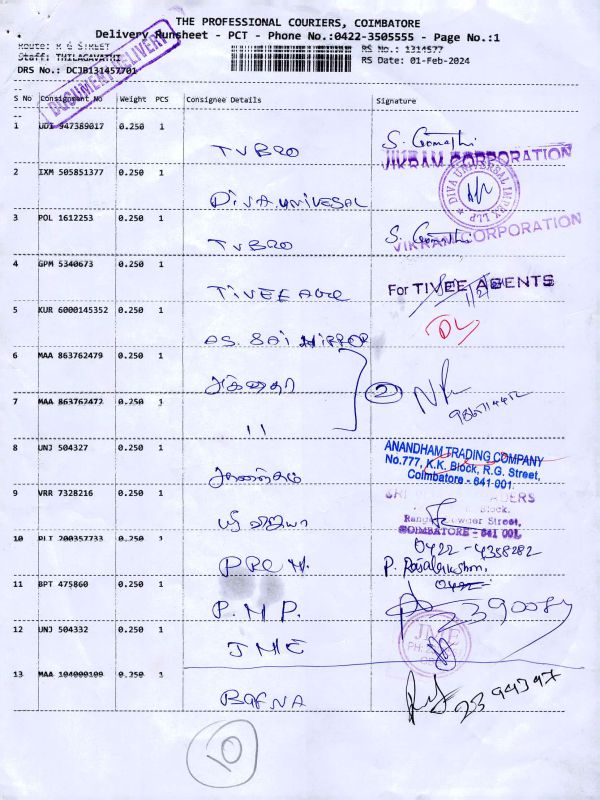 THE PROFESSIONAL COURIERS, COIMBATORE
Delivery Runsheet - PCT - Phone No.:0422-3505555 - Page No.:1
Route: R G STREET
RS No.: 1314577
Staff: THILAGAVATHI
RS Date: 01-Feb-2024
DRS No.: DCJB131457701
DOCUMENT DELIVERY
S No Consignment No Weight PCS Consignee Details Signature
1 UDI 947389017 0.250 1 TVBRO S. Gomathi
VIKRAM CORPORATION
2 IXM 505851377 0.250 1 DIVA UNIVESAL
DIVA UNIVERSAL IMPEX LLP
3 POL 1612253 0.250 1 TVBRO S. Gomathi
VIKRAM CORPORATION
4 GPM 5340673 0.250 1 TIVEE AGE
For TIVEE AGENTS
5 KUR 6000145352 0.250 1 AS. SAI MIRROR
6 MAA 863762479 0.250 1
2
7 MAA 863762472 0.250 1 11
8 UNJ 504327 0.250 1
ANANDHAM TRADING COMPANY
No.777, K.K. Block, R.G. Street,
Coimbatore - 641 001.
9 VRR 7328216 0.250 1
Block,
Street,
COIMBATORE - 641 001.
10 PLT 200357733 0.250 1 PPC M.
0422 - 4358282
P. Rajalakshmi,
11 BPT 475860 0.250 1 P.M.P.
0422
2390084
12 UNJ 504332 0.250 1 JME
JME
13 MAA 104000109 0.250 1 BAFNA
2394397
10